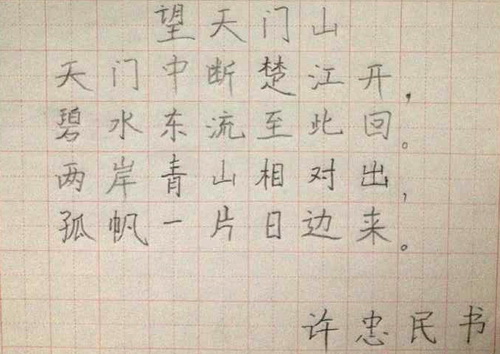 望天门山
天门中断楚江开，
碧水东流至此回。
两岸青山相对出，
孤帆一片日边来。
许忠民书